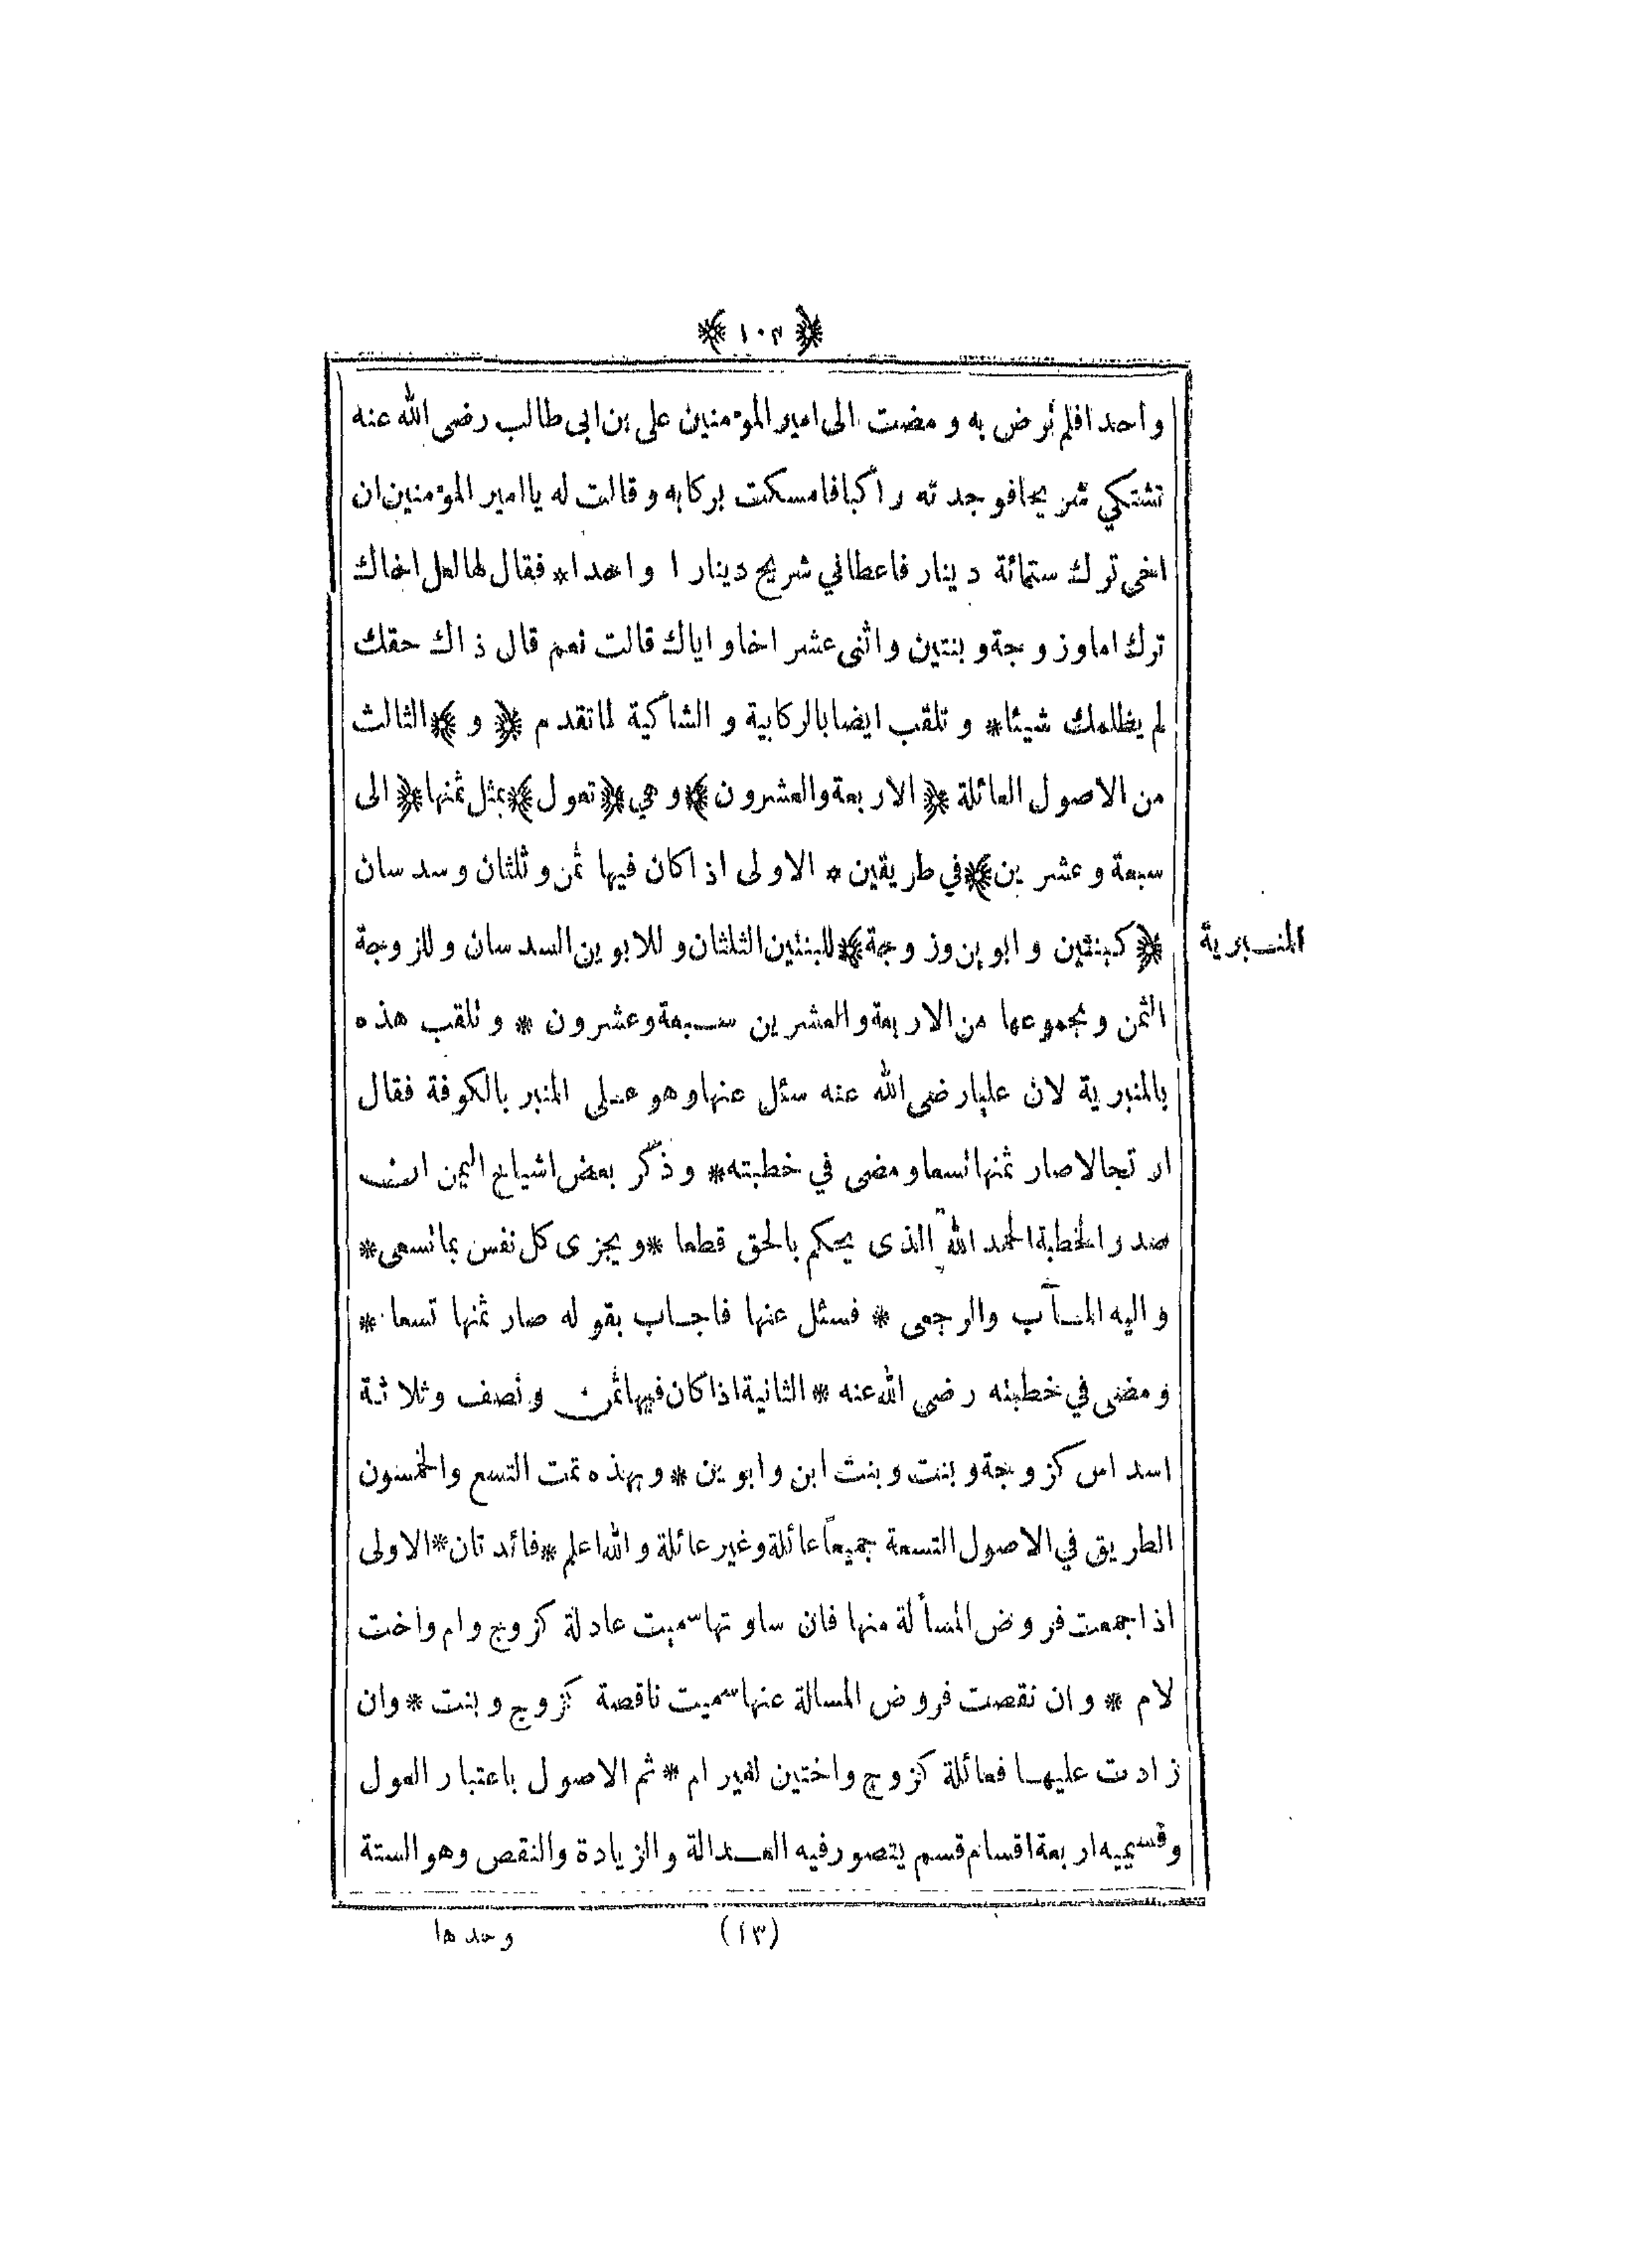 ﴿ ١٠٣ ﴾
واحدا فلم ترض به ومضت الى امير المؤمنين على بن ابى طالب رضى الله عنه
تشتكي شريحا فوجدته راكبا فامسكت بركابه وقالت له يا امير المؤمنين ان
اخى ترك ستمائة دينار فاعطاني شريح دينارا واحدا* فقال لها لعل اخاك
ترك اما وزوجة وبنتين واثنى عشر اخا واياك قالت نعم قال ذاك حقك
لم يظلمك شيئا* وتلقب ايضا بالركابية والشاكية لما تقدم ﴿ و ﴾ الثالث
من الاصول العائلة ﴿ الاربعة والعشرون ﴾ وهي ﴿ تعول ﴾ بمثل ثمنها ﴿ الى
سبعة وعشرين ﴾ في طريقين * الاولى اذا كان فيها ثمن وثلثان وسدسان
المنبرية
﴿ كبنتين وابوين وزوجة ﴾ للبنتين الثلثان وللابوين السدسان وللزوجة
الثمن ومجموعها من الاربعة والعشرين سبعة وعشرون * وتلقب هذه
بالمنبرية لان عليا رضى الله عنه سئل عنها وهو على المنبر بالكوفة فقال
ارتجالا صار ثمنها تسعا ومضى في خطبته* وذكر بعض اشياخ اليمن ان
صدر الخطبة الحمد الله الذى يحكم بالحق قطعا *ويجزى كل نفس بما تسعى*
واليه المآب والرجعى * فسئل عنها فاجاب بقوله صار ثمنها تسعا *
ومضى في خطبته رضى الله عنه * الثانية اذا كان فيها ثمن ونصف وثلاثة
اسداس كزوجة وبنت وبنت ابن وابوين * وبهذه تمت التسع والخمسون
الطريق في الاصول التسعة جميعاً عائلة وغير عائلة والله اعلم *فائدتان* الاولى
اذا جمعت فروض المسألة منها فان ساوتها سميت عادلة كزوج وام واخت
لام * وان نقصت فروض المسالة عنها سميت ناقصة كزوج وبنت * وان
زادت عليها فعائلة كزوج واختين لغير ام * ثم الاصول باعتبار العول
وقسيميه اربعة اقسام قسم يتصور فيه العدالة والزيادة والنقص وهو الستة
(١٣)
وحدها